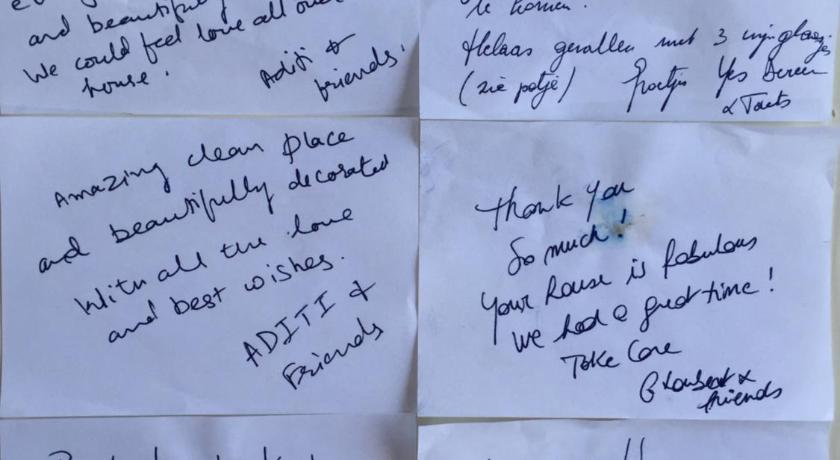 and beautifully
We could feel love all over
house!
Aditi &
friends!
te komen.
Helaas gevallen met 3 wijnglaasjes
(zie potje)
Amazing clean place
and beautifully decorated
With all the love
and best wishes.
ADITI &
Friends
Thank you
So much!
Your house is fabulous
We had a great time!
Take Care
&
friends